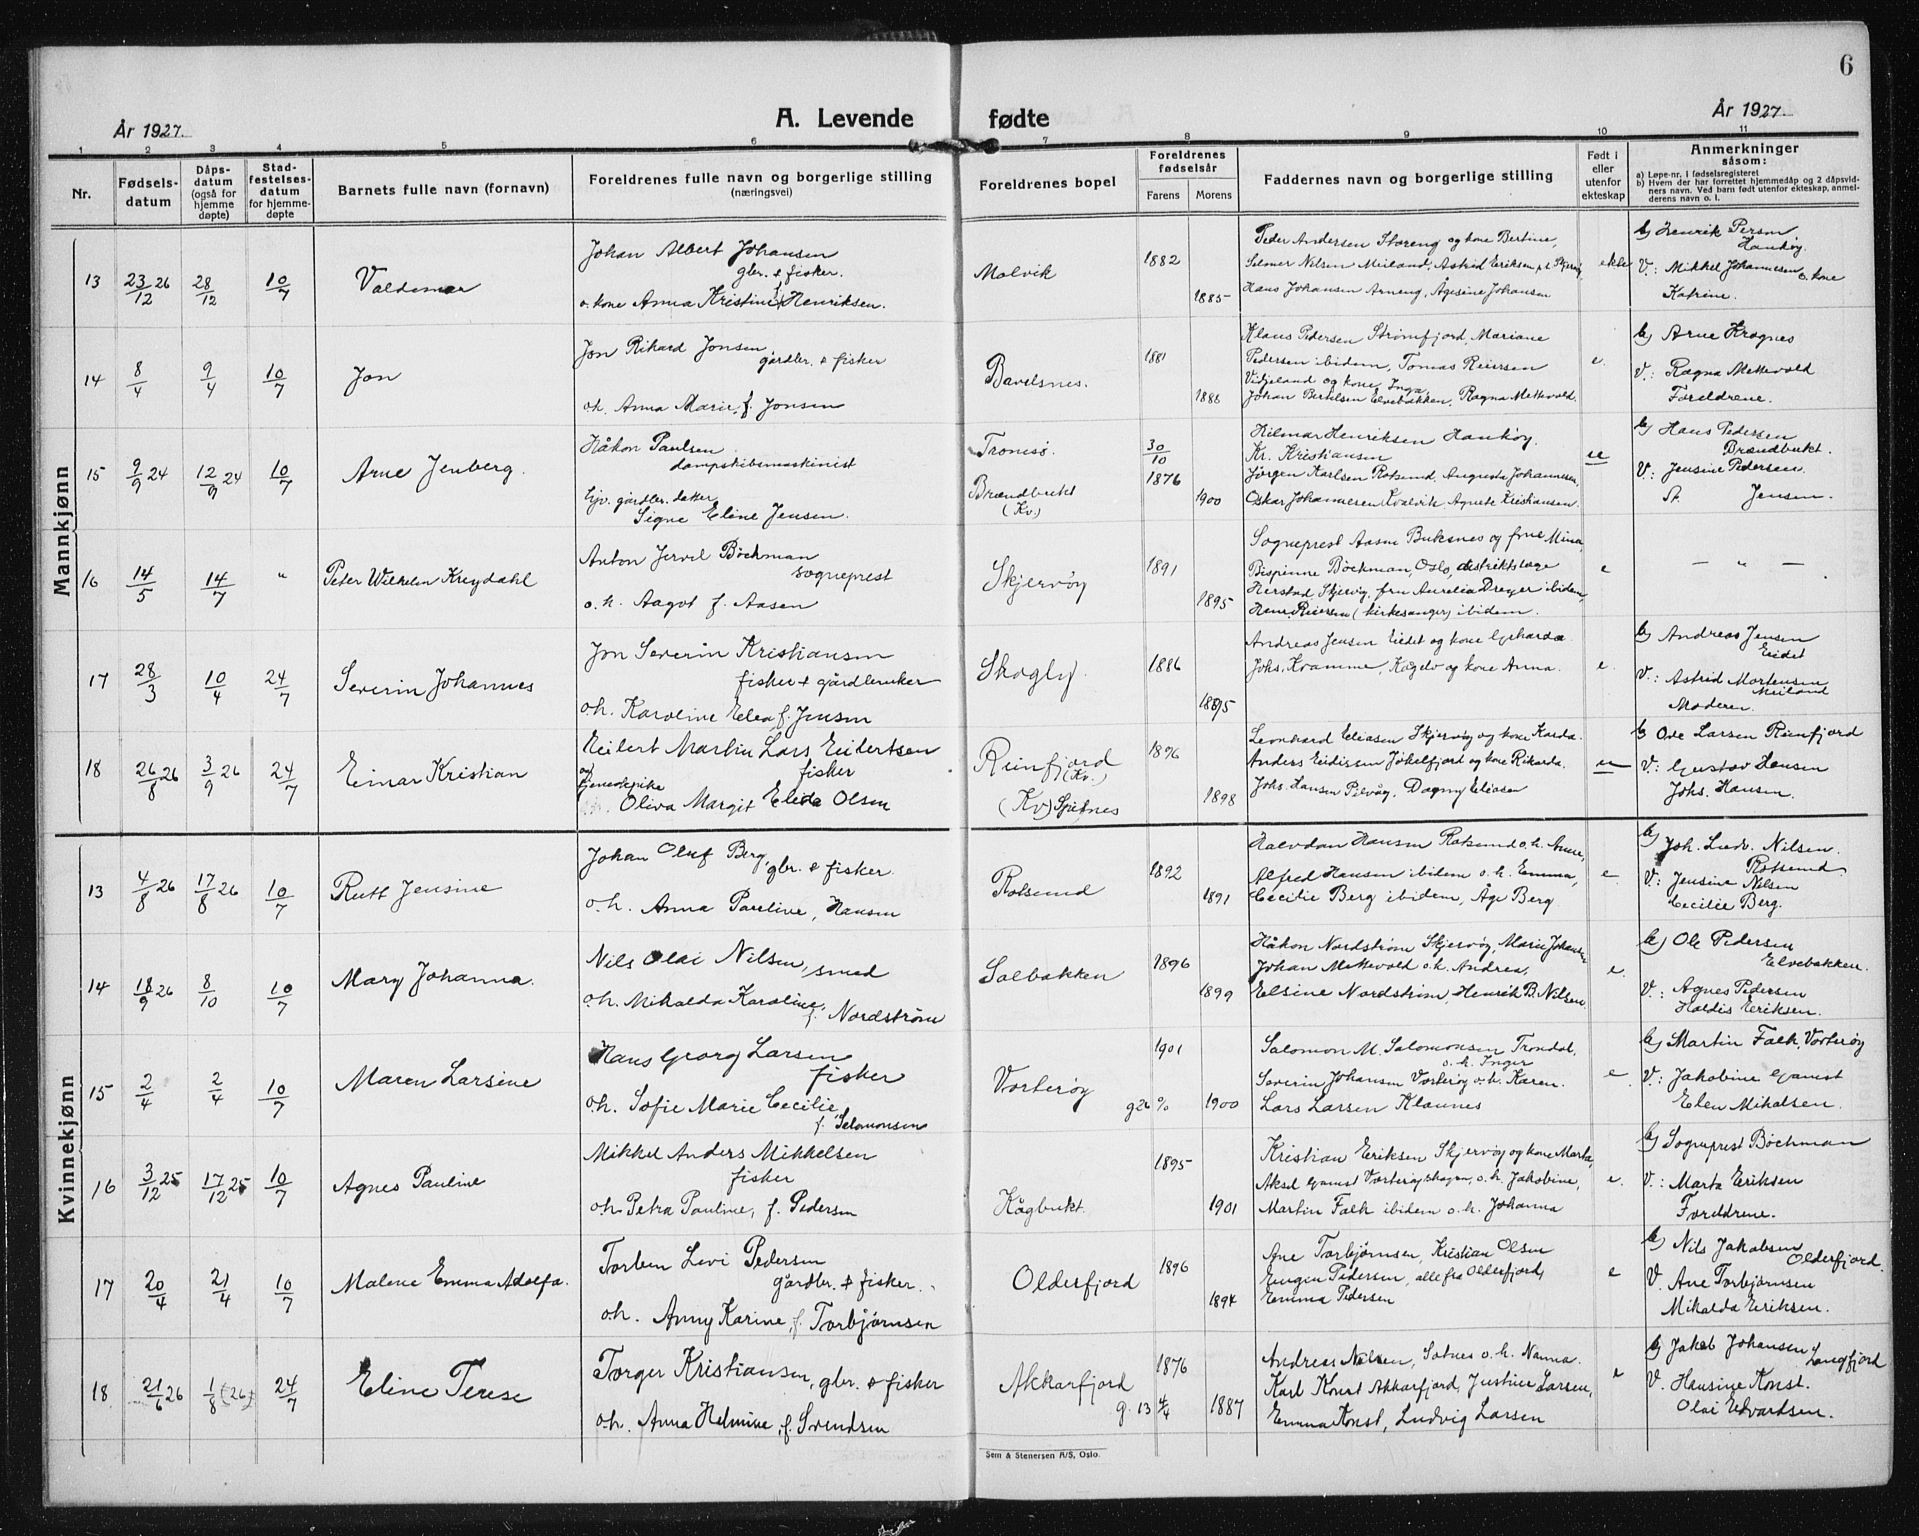 6
År 1927.
A. Levende fødte
År 1927.
1 2 3 4 5 6 7 8 9 10 11
Nr.
Fødsels-
datum
Dåps-
datum
(også for
hjemme
døpte)
Stad-
festelses-
datum
for hjemme-
døpte
Barnets fulle navn (fornavn)
Foreldrenes fulle navn og borgerlige stilling
(næringsvei)
Foreldrenes bopel
Foreldrenes
fødselsår
Farens Morens
Faddernes navn og borgerlige stilling
Født i
eller
utenfor
ekteskap
Anmerkninger
såsom:
a) Løpe-nr. i fødselsregisteret
b) Hvem der har forrettet hjemmedåp og 2 dåpsvid-
ners navn. Ved barn født utenfor ekteskap, anmel-
derens navn o. l.
Mannkjønn
13 23/12 26 28/12 10/7 Valdemar
Johan Albert Johansen
gbr. & fisker.
o. kone Anna Kristine f. Henriksen.
Molvik 1882 1885
Peder Andersen Storeng og kone Bertine,
Selmer Nilsen Meiland, Astrid Eriksen
Hans Johansen Arneng, Agesine Johansen
ekte
b) Henrik Person
Haukøy.
V: Mikkel Johannesen o. kone
Katrine.
14 8/4 9/4 10/7 Jon
Jon Rikard Jonsen
gårdbr. & fisker
o.h. Anna Marie, f. Jonsen
Bavelsnes. 1881 1886
Klaus Pedersen Strømfjord, Mariane
Pedersen ibidem, Tomas Reiersen
Vidjeland og kone Inga,
Johan Bertilsen Elvebakken, Ragna Mettevold.
e.
b) Arne Kragnes
V.: Ragna Mettevold
Foreldrene.
15 9/9 24 12/9 24 10/7 Arne Jenberg.
Håkon Paulsen
dampskibsmaskinist
Ejv. gårdbr. datter
Signe Eline Jensen.
Tromsø.
Brændbukt
(Kv.)
30/10
1876 1900
Hilmar Henriksen Haukøy,
Kr. Kristiansen
Jørgen Karlsen Rotsund, Augusta Johannesen,
Oskar Johannesen Kvalvik, Agnete Kristiansen.
ue
b) Hans Pedersen
Brændbukt.
V: Jensine Pedersen.
Jensen.
16 14/5 14/7 " Peter Wilhelm Kreydahl
Anton Jervel Bøckman
sogneprest
o.h. Aagot f. Aasen
Skjervøy 1891 1895
Sogneprest Aasen Buksnes og frue Mina,
Bispinne Bøckman, Oslo, distriktslæge
Herstad, Skjervøy, fru Aurelia Dreyer ibidem,
Reiersen (kirkesanger) ibidem.
e
— " —
17 28/3 10/4 24/7 Severin Johannes
Jon Severin Kristiansen
fisker & gårdbruker
o.h. Karoline Elea f. Jensen
Skogly. 1886 1895
Andreas Jensen Eidet og kone Gerharda.
Johs. Kvamme, Kågelv og kone Anna.
e.
b) Andreas Jensen
Eidet
V.: Astrid Mortensen
Meiland
Moderen.
18 26/8 26 3/9 26 24/7 Einar Kristian
Eilert Martin Lars Eilertsen
fisker
og
tjenestepike
Oliva Margit Elida Olsen
Reinfjord
(Kv.)
(Kv.) Spitnes
1896 1898
Leonhard Eliasen Skjervøy og kone Karda.
Anders Eidissen Jøkelfjord og kone Rikarda.
Johs. Hansen Pilvåg, Dagny Eliasen
ue
b) Ove Larsen Reinfjord
V.: Gustav Hansen
Johs. Hansen.
Kvinnekjønn
13 4/8 26 17/8 26 10/7 Rutt Jensine
Johan Oluf Berg, gbr. & fisker.
o.h. Anna Pauline, Hansen
Rotsund 1892 1891
Halvdan Hansen Rotsund o.h. Anne,
Alfred Hansen ibidem o.h. Emma,
Cecilie Berg ibidem, Åge Berg
e.
b) Joh. Ludv. Nilsen.
Rotsund.
V.: Jensine Nilsen
Cecilie Berg.
14 18/9 26 8/10 10/7 Mary Johanna.
Nils Olai Nilsen, smed
o.h. Mikalda Karoline,
f. Nordstrøm
Solbakken 1896 1899
Håkon Nordstrøm Skjervøy, Marie Johansen
Johan Mettevold o.h. Andrea,
Elsine Nordstrøm, Henrik B. Nilsen
e.
b) Ole Pedersen
Elvebakken.
V.: Agnes Pedersen
Haldis Eriksen.
15 2/4 2/4 10/7 Maren Larsine
Hans Georg Larsen
fisker
o.h. Sofie Marie Cecilie,
f. Salomonsen
Vorterøy
1901 1900
Salomon M. Salomonsen Trondal,
o.h. Inger
Severin Johansen Vorterøy o.h. Karen.
Lars Larsen Klaunes
e
b) Martin Falk, Vorterøy
V.: Jakobine Gamst
Elen Mikalsen.
16 3/12 25 17/12 25 10/7 Agnes Pauline
Mikkel Anders Mikkelsen
fisker
o.h. Petra Pauline, f. Pedersen
Kågbukt. 1895 1901
Kristian Eriksen Skjervøy og kone Marta,
Aksel Gamst Vorterøyskagen, o.h. Jakobine,
Martin Falk ibidem o.h. Johanna
e.
b) Sogneprest Bøckman
V.: Marta Eriksen
Foreldrene.
17 20/4 21/4 10/7 Malene Emma Adolfa.
Torben Levi Pedersen
gårdbr. & fisker.
o.h. Anny Karine, f. Torbjørnsen
Olderfjord 1896 1894
Ane Torbjørnsen, Kristian Olsen
Eugen Pedersen, alle fra Olderfjord,
Emma Pedersen
e
b) Nils Jakobsen
Olderfjord.
V. Ane Torbjørnsen
Mikalda Eriksen.
18 21/6 26 1/8 (26) 24/7 Eline Terese
Torger Kristiansen, gbr. & fisker
o.h. Anna Helmine, f. Svendsen
Akkarfjord
g. 13 4/4
1876 1887
Andreas Nilsen, Sotnes o.h. Nanna.
Karl Konst Akkarfjord, Justine Larsen,
Emma Konst, Ludvig Larsen
e
b) Jakob Johansen
Langfjord
V. Hansine Konst.
Olai Edvardsen.
Sem & Stenersen A/S, Oslo.